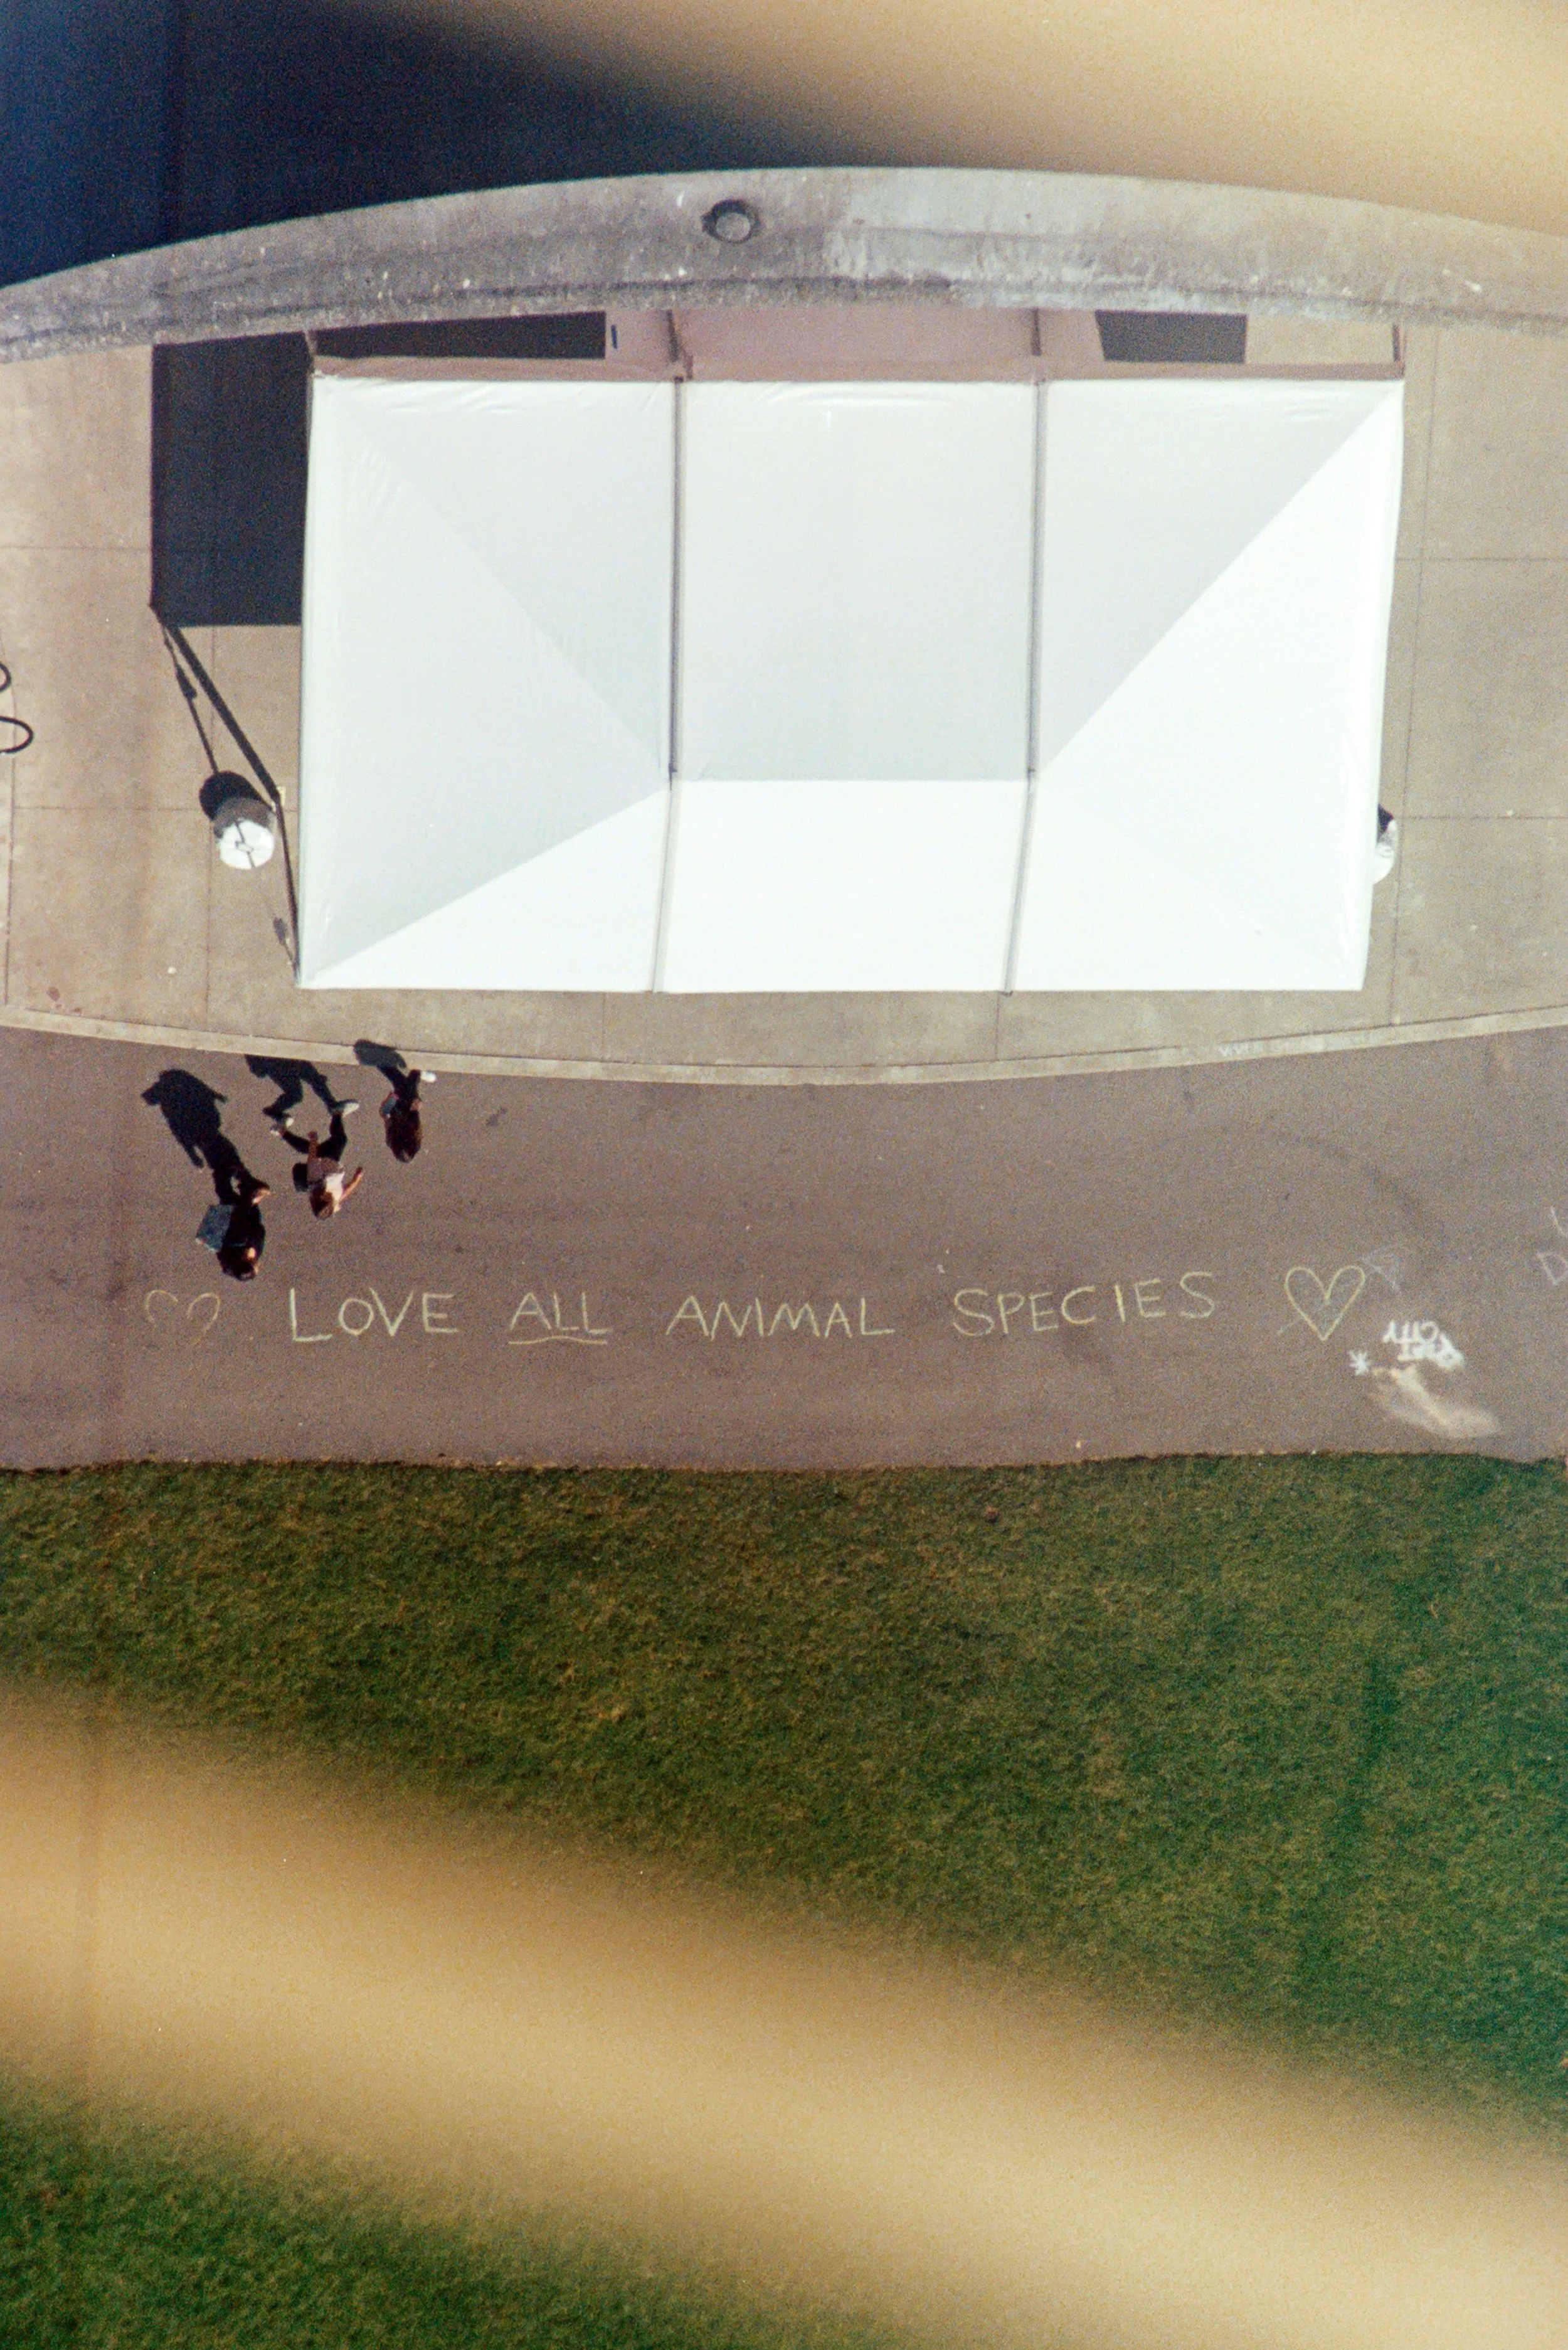 ♡ LOVE ALL ANIMAL SPECIES ♡
CITY